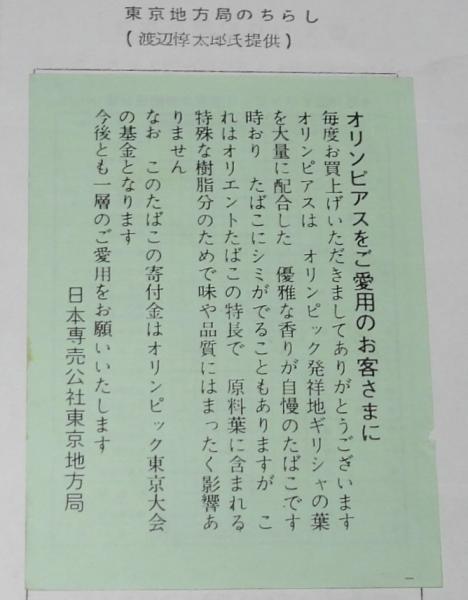 東京地方局のちらし
(渡辺惇太郎氏提供)
オリンピアスをご愛用のお客さまに
毎度お買上げいただきましてありがとうございます
オリンピアスは オリンピック発祥地ギリシャの葉
を大量に配合した 優雅な香りが自慢のたばこです
時おり たばこにシミがでることもありますが こ
れはオリエントたばこの特長で 原料葉に含まれる
特殊な樹脂分のためで味や品質にはまったく影響あ
りません
なお このたばこの寄付金はオリンピック東京大会
の基金となります
今後とも一層のご愛用をお願いいたします
日本専売公社東京地方局